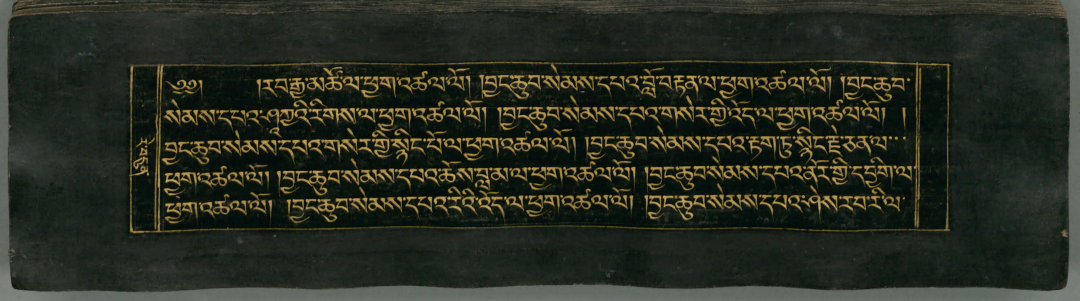 ༄༅། །རབ་རྒྱ་མཚོ་ལ་ཕྱག་འཚལ་ལོ། །བྱང་ཆུབ་སེམས་དཔའ་བློ་བརྟན་ལ་ཕྱག་འཚལ་ལོ། །བྱང་ཆུབ་
སེམས་དཔའ་ཤཱཀྱའི་རིགས་ལ་ཕྱག་འཚལ་ལོ། །བྱང་ཆུབ་སེམས་དཔའ་གསེར་གྱི་འོད་ལ་ཕྱག་འཚལ་ལོ། །
བྱང་ཆུབ་སེམས་དཔའ་གསེར་གྱི་སྙིང་པོ་ལ་ཕྱག་འཚལ་ལོ། །བྱང་ཆུབ་སེམས་དཔའ་རྟག་ཏུ་སྙིང་རྗེ་ཅན་ལ་
ཕྱག་འཚལ་ལོ། །བྱང་ཆུབ་སེམས་དཔའ་ཆོས་བླ་མ་ལ་ཕྱག་འཚལ་ལོ། །བྱང་ཆུབ་སེམས་དཔའ་ནོར་གྱི་དཔྱིག་ལ་
ཕྱག་འཚལ་ལོ། །བྱང་ཆུབ་སེམས་དཔའ་རིའི་འོད་ལ་ཕྱག་འཚལ་ལོ། །བྱང་ཆུབ་སེམས་དཔའ་ཤེས་རབ་རི་ལ་